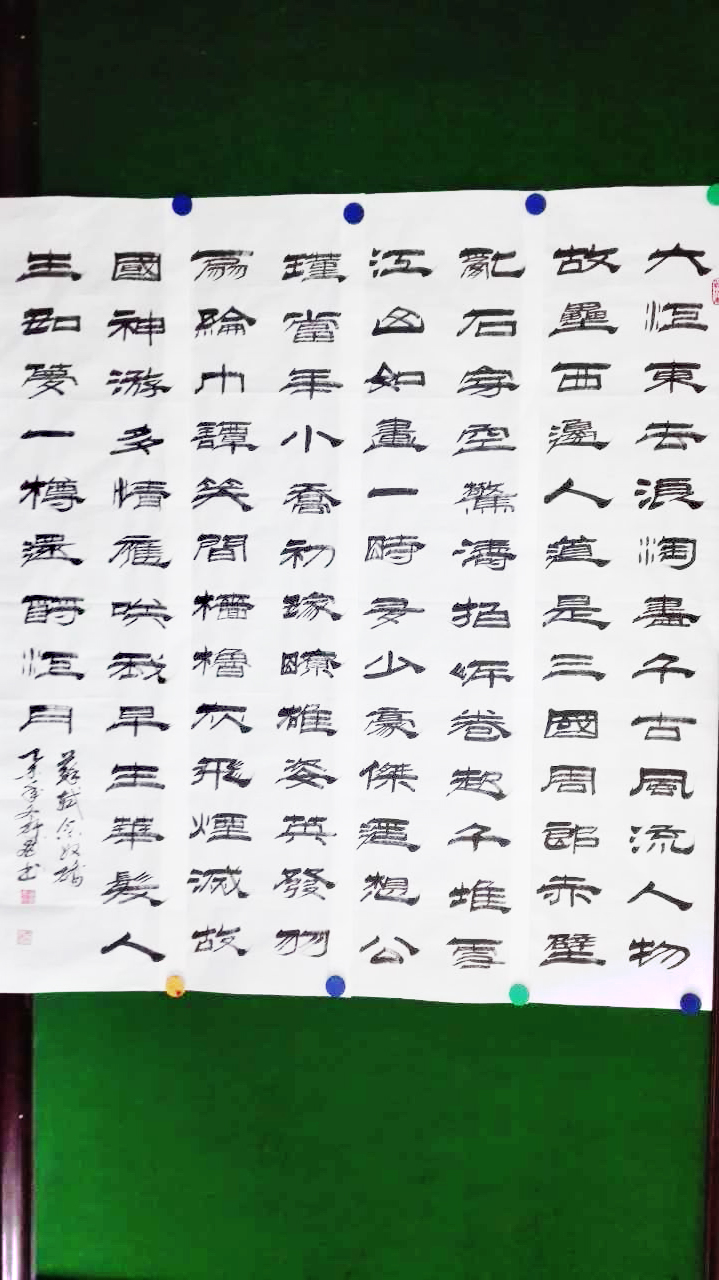 大江東去浪淘盡千古風流人物
故壘西邊人道是三國周郎赤壁
亂石穿空驚濤拍岸卷起千堆雪
江山如畫一時多少豪傑遥想公
瑾當年小喬初嫁瞭雄姿英發羽
扇綸巾譚笑間檣櫓灰飛煙滅故
國神游多情應笑我早生華髮人
生如夢一樽還酹江月
蘇軾念奴嬌
書